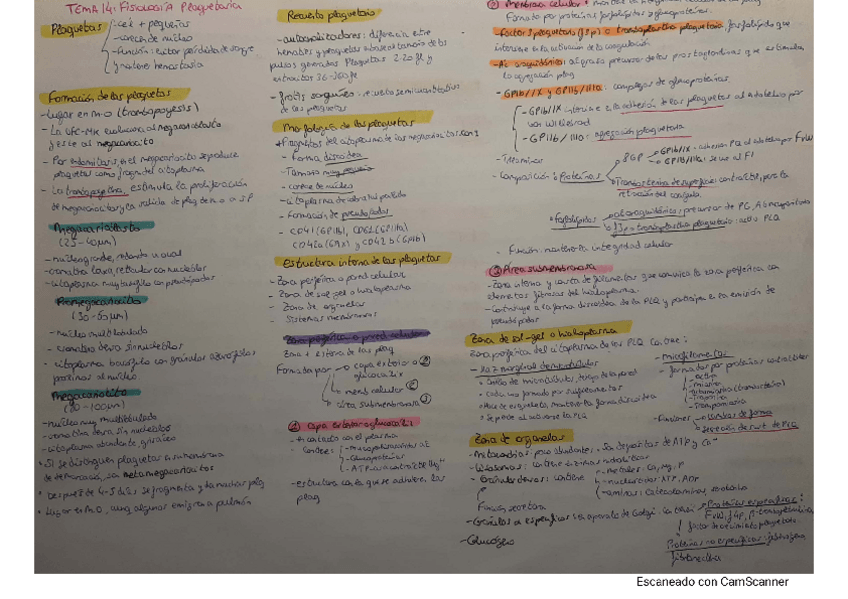 TEMA 14: Fisiología Plaquetaria
Plaquetas
: cél + pequeñas
- carecen de núcleo
- Función: evitar pérdida de sangre
y mantener hemostasia
Formación de las plaquetas
- Lugar en M.O (trombopoyesis)
- La UFC-MK evoluciona al megacarioblasto
y este al megacariocito
- Por endomitosis, el megacariocito se produce
plaquetas como fragm del citoplasma
- La trombopoyetina, estimula la proliferación
de megacariocitos y la salida de plaq de M.O a SP
Megacarioblasto
(25-40μm)
- núcleo grande, redondo u oval
- cromatina laxa, reticular con nucleolos
Promegacariocito
(30-60μm)
- núcleo multilobulado
- cromatina densa sin nucleolos
- citoplasma basófilo con gránulos azurófilos
próximas al núcleo
Megacariocito
(80-100μm)
- núcleo muy multilobulado
- cromatina densa sin nucleolos
- citoplasma abundante, grisáceo
* Si se distinguen plaquetas en membrana
de demarcación, son metamegacariocitos
* Después de 4-5 días se fragmenta y da muchas plaq
* Lugar en M.O, aunq algunos emigran a pulmón
Recuento plaquetario
- autoanalizadores: diferencia entre
hematíes y plaquetas
Plaquetas 2-20 fl y
eritrocitos 36-360 fl
- frotis sanguíneo: recuento semicuantitativo
de las plaquetas
Morfología de las plaquetas
* Fragmentos del citoplasma de los megacariocitos con:
- Forma discoidea
- Tamaño muy pequeño
- carece de núcleo
- citoplasma de color azul pálido
- Formación de pseudópodos
- CD41 (GPIIb), CD61 (GPIIIa)
CD42a (GPIX) y CD42b (GPIb)
Estructura interna de las plaquetas
- Zona periférica o pared celular
- Zona de sol-gel o hialoplasma
- Zona de orgánulos
- Sistemas membranosos
Zona periférica o pared celular
Zona + externa de las plaq
Formada por
→ capa exterior o glucocálix ①
→ memb celular ②
→ área submembranosa ③
① capa exterior o glucocálix
- En contacto con el plasma
- Contiene:
- Mucopolisacáridos
- Glucoproteínas
- estructura con la que se adhieren las
plaq
② Membrana celular
Formado por proteínas, fosfolípidos y glucoproteínas.
- Factor 3 plaquetario (f3p) o tromboplastina plaquetaria, fosfolípido que
interviene en la activación de la coagulación
- Ac. araquidónico: ác graso precursor de las prostaglandinas que estimulan
la agregación plaq
- GPIb/IX y GPIIb/IIIa: complejos de glucoproteínas.
- GPIb/IX interviene en la adhesión de las plaquetas al endotelio por
von Willebrand
- GPIIb/IIIa: agregación plaquetaria
- Composición: Proteínas
→ GPIb/IX - adhesión PLQ al endotelio por FvW
→ GPIIb/IIIa: se une al FI
→ Trombostenina de superficie: contráctil, para la
retracción del coágulo.
- fosfolípidos
→ ác araquidónico: precursor de PG
→ f3p = tromboplastina plaquetaria: activ PLQ
- Función: mantener la integridad celular
③ Área submembranosa
- Zona interna y consta de filamentos que comunica la zona periférica con
elementos fibrosos del hialoplasma.
- Contribuye a la forma discoidea de la PLQ y participa en la emisión de
pseudópodos
Zona de sol-gel o hialoplasma
Zona periférica del citoplasma de las PLQ. Contiene:
- Haz marginal de microtúbulos
- Anillo de microtúbulos, debajo de la pared
* Cada uno formado por subfilamentos
* Hace de esqueleto, mantener la forma discoidea
* Se pierde al activarse la PLQ
- Microfilamentos
- formados por proteínas contráctiles
- Actina
- Miosina
- Trombostenina
- Tropomiosina
- Funciones
→ cambios de forma
→ secreción de sust de PLQ
Zona de orgánulos
- Mitocondrias: poco abundantes. Son depósitos de ATP y Ca²⁺
- Lisosomas: contiene enzimas hidrolíticas
- Gránulos densos: contiene
→ metales: Ca, Mg, P
→ nucleótidos: ATP, ADP
→ aminas: Catecolaminas, serotonina
Función secretora
- Gránulos α específicos: en aparato de Golgi. Contienen
→ Proteínas específicas:
FvW, f4p, β-tromboglobulina,
factor de crecimiento plaquetario
Proteínas no específicas: fibrinógeno,
fibronectina
- Glucógeno
Escaneado con CamScanner